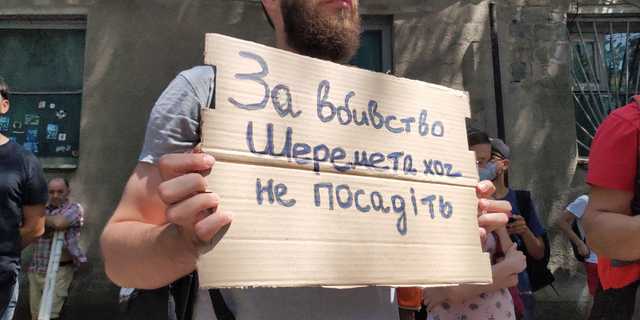 За вбивство
Шеремета хоч
не посадіть